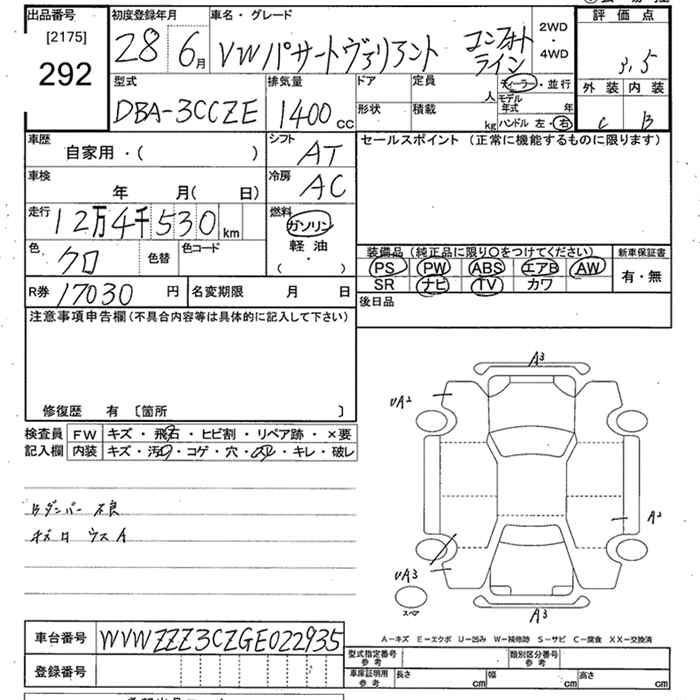 出品番号
[2175]
292
初度登録年月
28 6月
車名・グレード
VWパサートヴァリアント コンフォートライン
2WD
・
4WD
評価点
3.5
型式
DBA-3CCZE
排気量
1400 cc
ドア
定員
人
形状
積載
kg
ディーラー・並行
モデル年式 年
ハンドル 左・右
外装 内装
C B
車歴
自家用・( )
シフト
AT
セールスポイント (正常に機能するものに限ります)
車検
年 月( 日)
冷房
AC
走行
12万4千530km
燃料
ガソリン
軽油
( ・ )
色
クロ
色替
色コード
装備品(純正品に限り〇をつけてください)
PS PW ABS エアB AW
SR ナビ TV カワ
新車保証書
有・無
R券
17030 円
名変期限 月 日
後日品
注意事項申告欄(不具合内容等は具体的に記入して下さい)
修復歴 有 〔箇所 〕
検査員
記入欄
FW キズ・飛石・ヒビ割・リペア跡・×要
内装 キズ・汚れ・コゲ・穴・スレ・キレ・破レ
Bダンパー不良
A3
UA2
A2
UA3
スペア
A3
A－キズ E－エクボ U－凹み W－補修跡 S－サビ C－腐食 XX－交換済
車台番号
WVWZZZ3CZGE022935
登録番号
型式指定番号
参考
類別区分番号
参考
車庫証明用
参考
長さ cm
幅 cm
高さ cm